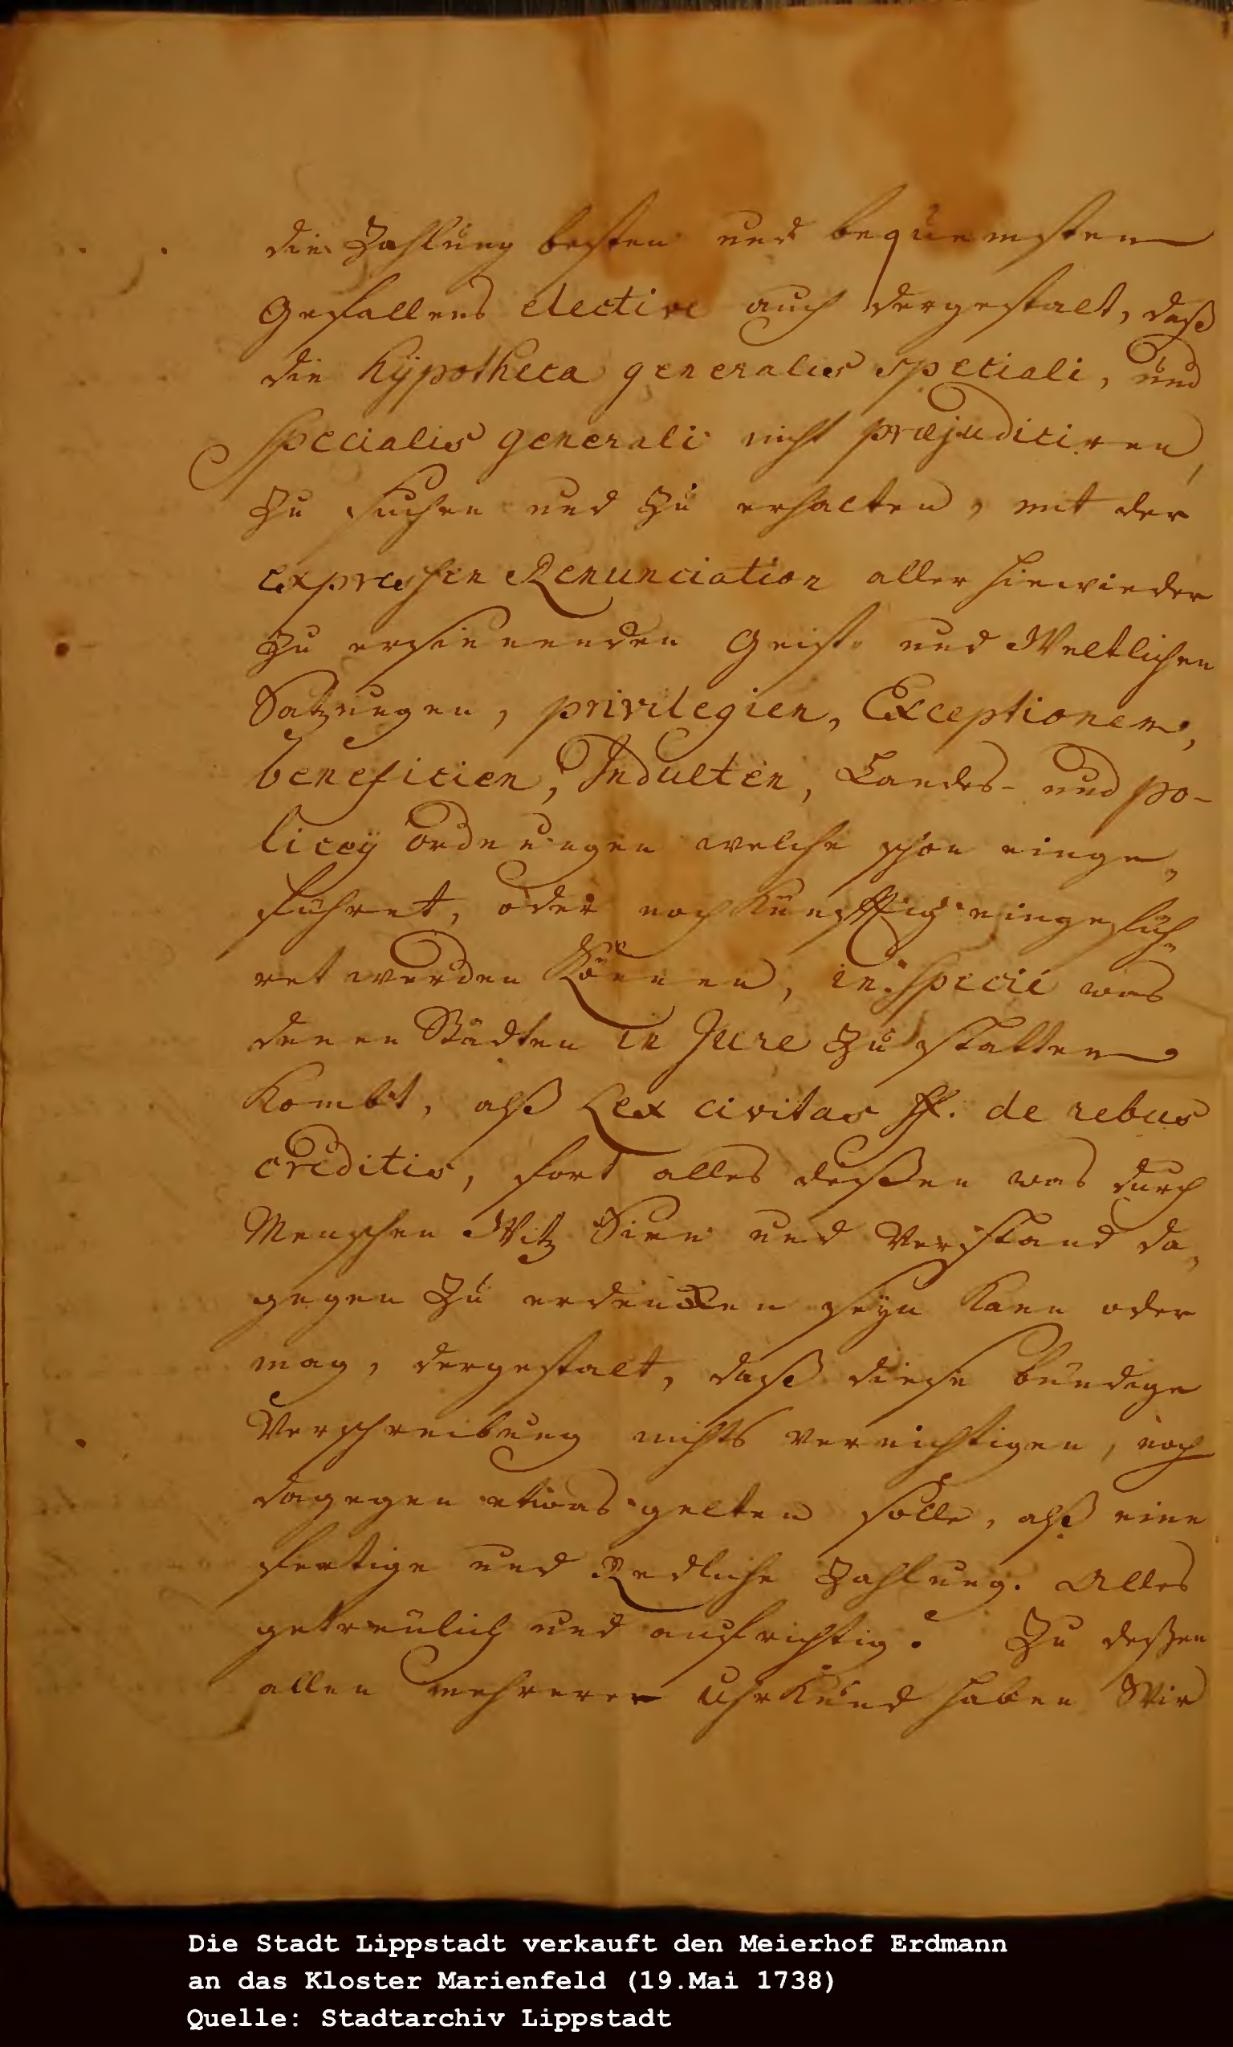 die Zahlung besten und bequemsten
Gefallens elective auch dergestalt, daß
die hÿpotheca generalis speciali, und
specialis generali nicht præjudiciren,
zu suchen und zu erhalten, mit der
expressen Renunciation aller hiewieder
zu ersinnenden Geist- und Weltlichen
Satzungen, privilegien, Exceptionen,
beneficien, Indulten, Landes- und po-
liceÿ ordnungen welche schon einge-
führet, oder noch künfftig eingefüh-
ret werden können, in specie was
denen Städten in Jure zu statten
kombt, alß Lex civitas ff. de rebus
creditis, fort alles deßen was durch
Menschen Witz Sinn und Verstand da-
gegen zu erdencken seÿn kann oder
mag, dergestalt, daß diese bündige
Verschreibung nichts vernichtigen, noch
dagegen etwas gelten solle, alß eine
fertige und Redliche Zahlung. Alles
getreulich und aufrichtig. Zu deßen
allen mehrerer Uhrkund haben Wir
Die Stadt Lippstadt verkauft den Meierhof Erdmann
an das Kloster Marienfeld (19.Mai 1738)
Quelle: Stadtarchiv Lippstadt